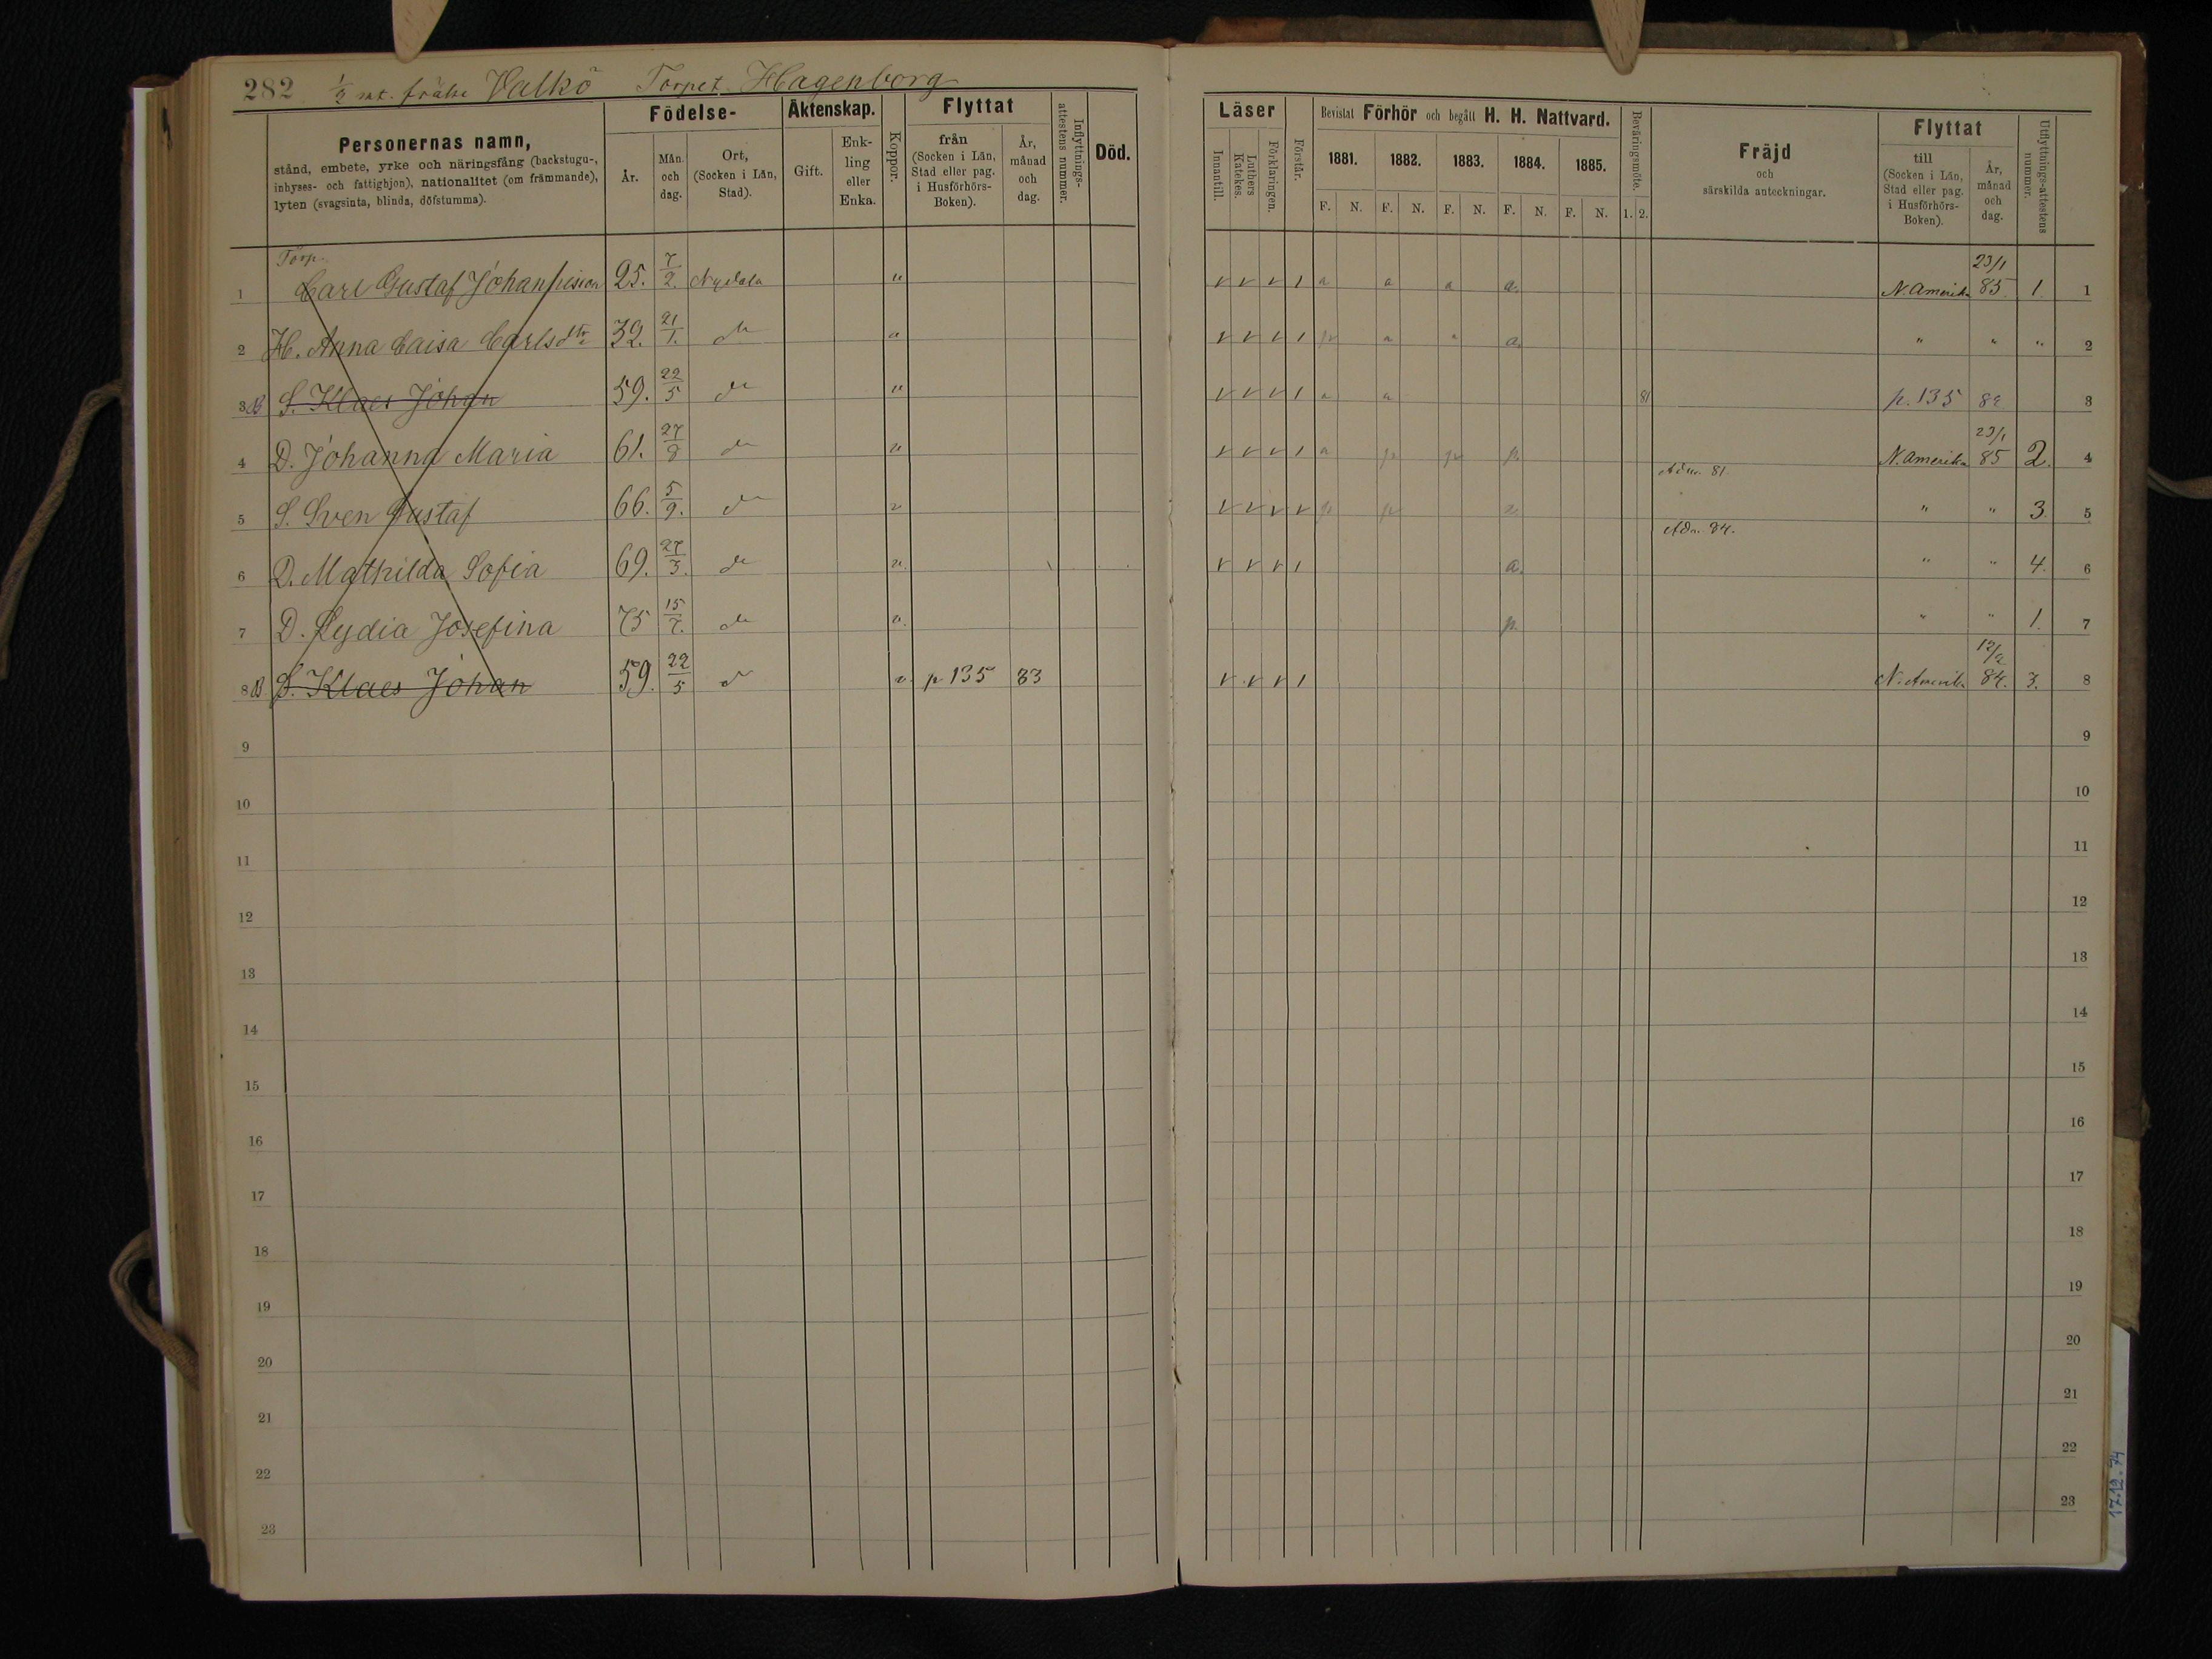 282 ½ mt. frälse Valkö Torpet Hagenborg
Personernas namn,
stånd, embete, yrke och näringsfång (backstugu-,
inhyses- och fattighjon), nationalitet (om främmande),
lyten (svagsinta, blinda, döfstumma).
Födelse-
År.
Mån. och dag.
Ort, (Socken i Län, Stad).
Äktenskap.
Gift.
Enkling eller Enka.
Koppor.
Flyttat
från (Socken i Län, Stad eller pag. i Husförhörs-Boken).
År, månad och dag.
Inflyttnings-attestens nummer.
Död.
Läser
Innantill.
Luthers Katekes.
Förklaringen.
Förstår.
Bevistat Förhör och begått H. H. Nattvard.
1881. 1882. 1883. 1884. 1885.
F. N. F. N. F. N. F. N. F. N.
Beväringsmöte.
1. 2.
Fräjd
och
särskilda anteckningar.
Flyttat
till (Socken i Län, Stad eller pag. i Husförhörs-Boken).
År, månad och dag.
Utflyttnings-attestens nummer.
Torp.
1 Carl Gustaf Johannesson 25. 7/2. Nydala " v v v 1 a a a a. N. Amerika 23/1 85. 1. 1
2 H. Anna Caisa Carlsdtr 32. 21/1. do " v v v 1 p a " a. " " " 2
3 S. Klaes Johan 59. 22/5 do " v v v 1 a a 81 p. 135 82 3
4 D. Johanna Maria 61. 27/8 do v. v v v 1 a p p p. Adm. 81. N. Amerika 23/1 85 2. 4
5 S. Sven Gustaf 66. 5/9. do v v v v v p p Adm. 84. " " 3. 5
6 D. Mathilda Sofia 69. 27/3. do v. v v v 1 a. " " 4. 6
7 D. Lydia Josefina 75 15/7. do v. p. " " 1. 7
8 S. Klaes Johan 59. 22/5 do v. p 135 83 v v v 1 N. Amerika 84. 3. 8
9 9
10 10
11 11
12 12
13 13
14 14
15 15
16 16
17 17
18 18
19 19
20 20
21 21
22 22
23 23
17.12.74